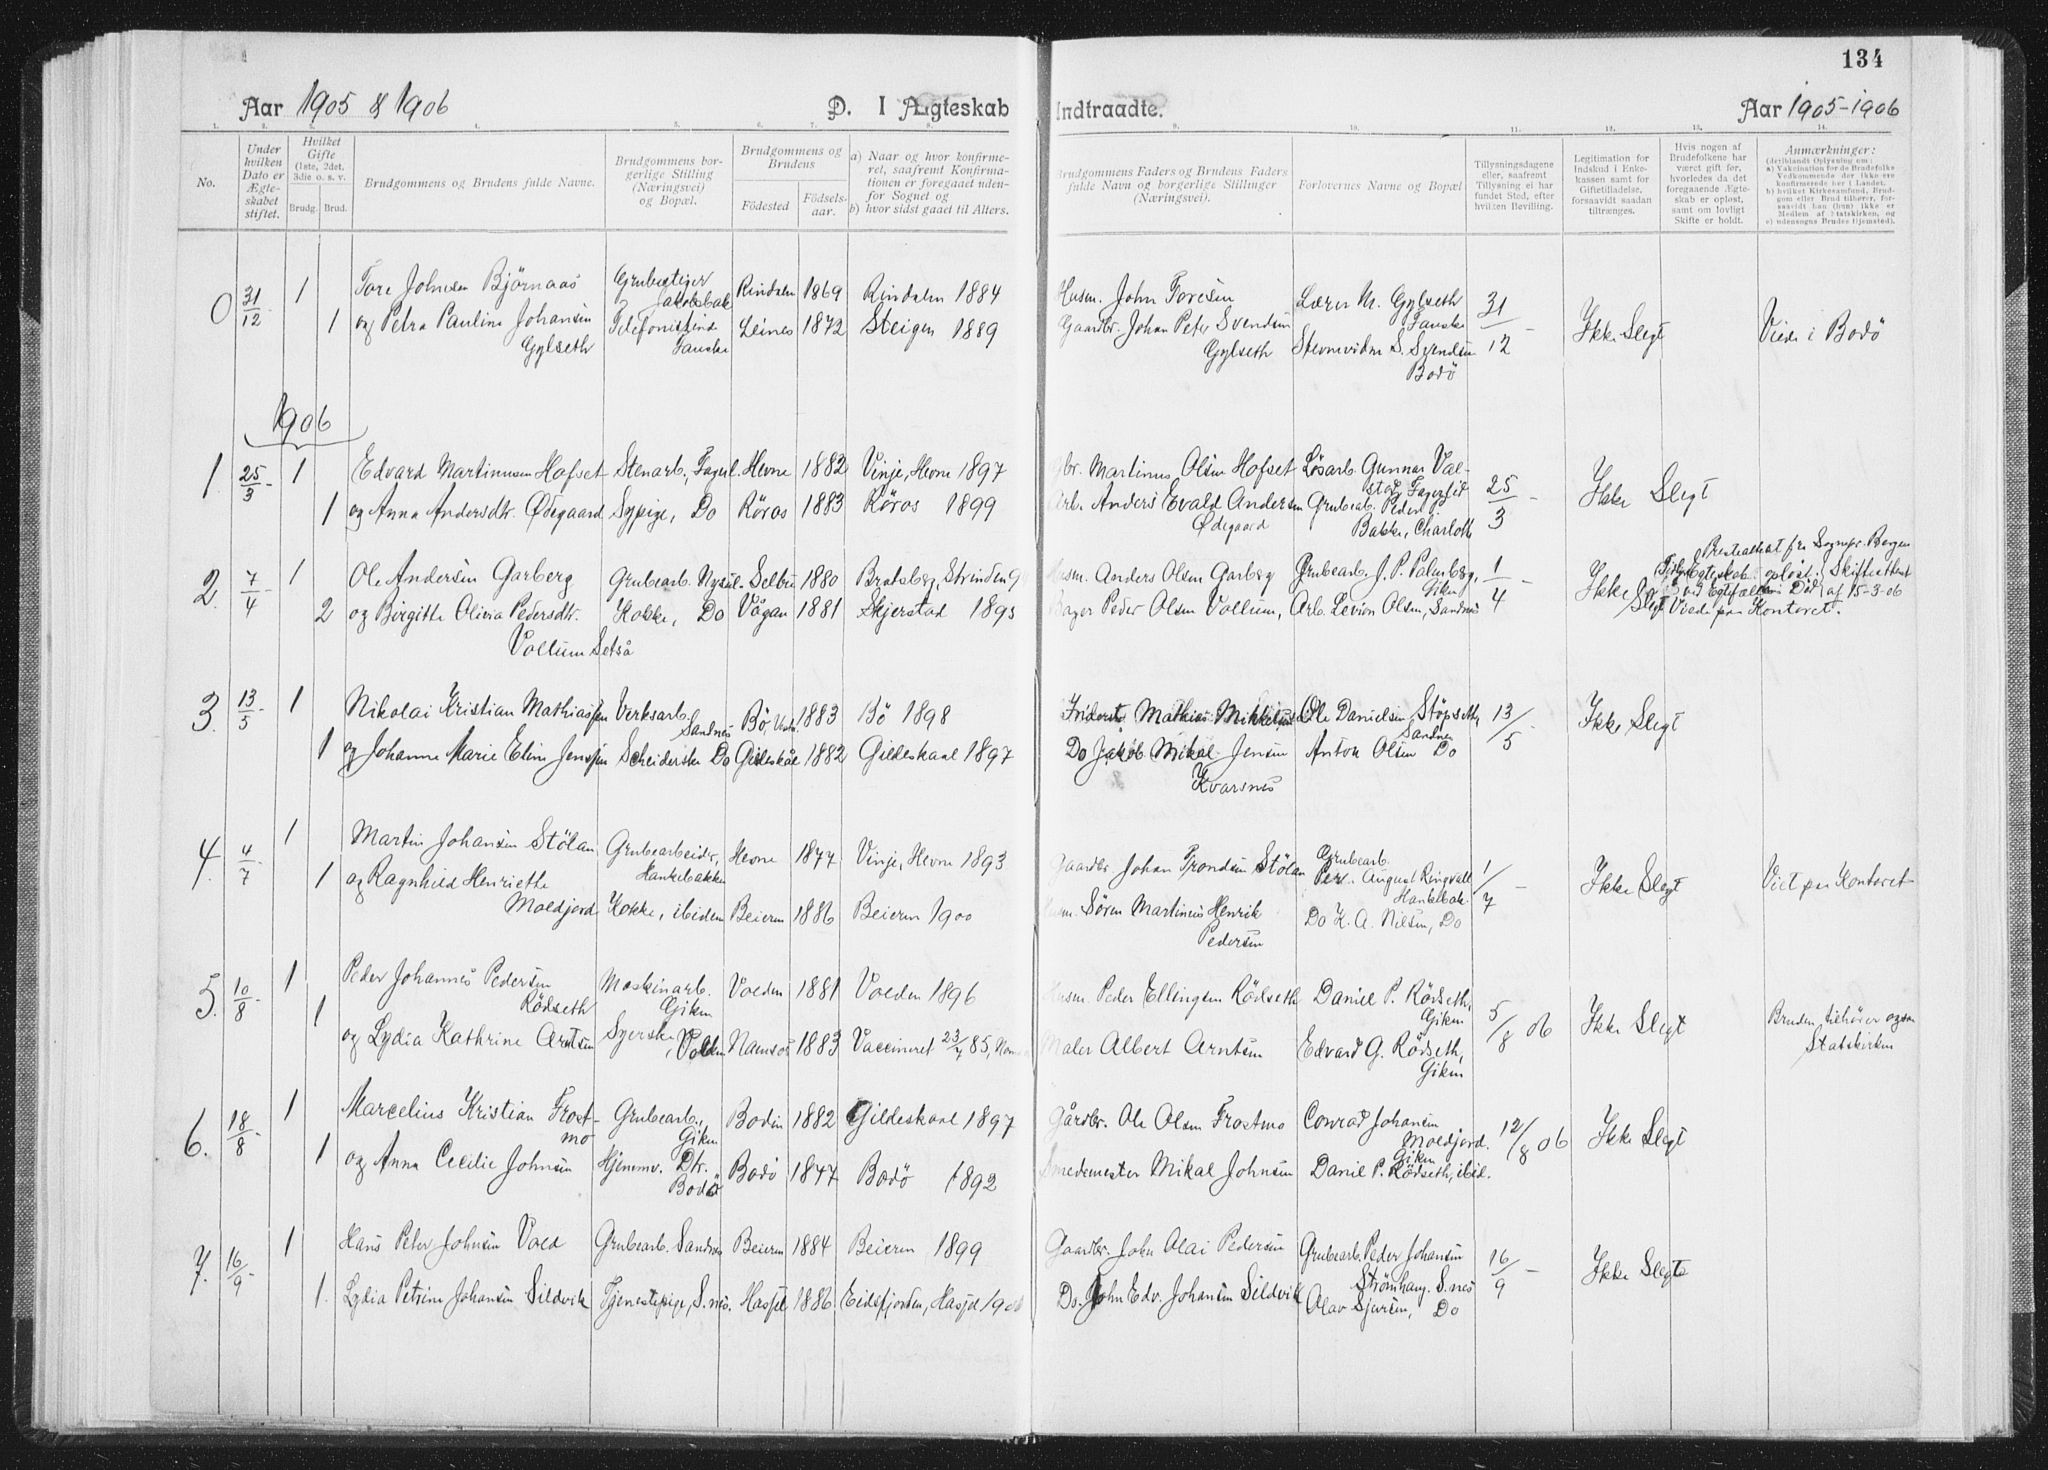 134
Aar 1905 & 1906
D. I Ægteskab
Indtraadte.
Aar 1905-1906
1. 2. 3. 4. 5. 6. 7. 8. 9. 10. 11. 12. 13. 14.
No.
Under hvilken Dato er Ægteskabet stiftet.
Hvilket Gifte (1ste, 2det, 3die o. s. v.
Brudg. Brud.
Brudgommens og Brudens fulde Navne.
Brudgommens borgerlige Stilling (Næringsvei) og Bopæl.
Brudgommens og Brudens
Födested
Födselsaar.
a) Naar og hvor konfirmeret, saafremt Konfirmationen er foregaaet udenfor Sognet og
b) hvor sidst gaaet til Alters.
Brudgommens Faders og Brudens Faders fulde Navn og borgerlige Stillinger (Næringsvei).
Forlovernes Navne og Bopæl
Tillysningsdagene eller, saafremt Tillysning ei har fundet Sted, efter hvilken Bevilling.
Legitimation for Indskud i Enkekassen samt for Giftetilladelse, forsaavidt saadan tiltrænges.
Hvis nogen af Brudefolkene har været gift før, hvorledes da det foregaaende Ægteskab er opløst, samt om lovligt Skifte er holdt.
Anmærkninger:
(deriblandt Oplysning om:
a) Vakcination for de Brudefolks Vedkommende der ikke ere konfirmerede her i Landet,
b) hvilket Kirkesamfund, Brudgom eller Brud tilhører, forsaavidt han (hun) ikke er Medlem af Statskirken, og
c) udensogns Brudes Hjemsted).
0 31/12 1 Tore Johnsen Björnaas Grubestiger Jakobsbak Rindalen 1869 Rindalen 1884 Husm. John Toresen Lærer M. Gylseth Fauske 31/12 - Ikke Slegt Viede i Bodö
1 og Petra Pauline Johansen Gylseth Telefonistinde Fauske Leines 1872 Steigen 1889 Gaardbr. Johan Peter Svendsen Gylseth S. Svendsen Bodö
1906
1. 25/3 - 1 Edvard Martinusen Hofset Stenarb., Fagerl. Hevne 1882 Vinje, Hevne 1897 Gbr. Martinus Olsen Hofset Lösarb. Gunnar Valstad, Fagerlid 25/3 - Ikke Slegt
1 og Anna Andersdtr. Ødegaard Sypige, Do Röros 1883 Röros 1899 Arb. Anders Evald Andersen Ødegaard Grubearb. Peder J. Bakke, Charlotte
2. 7/4 - 1 Ole Andersen Garberg Grubearb. Nysul. Selbu 1880 Bratsberg, Strinden Husm. Anders Olsen Garberg Grubearb. J. P. Palmberg, Giken 1/4 - Ikke Slegt Presteattest fra Sognepr. Bergen
2 og Birgitte Olivia Pedersdtr. Vollum Setså Kokke, Do Vågan 1881 Skjerstad 1895 Bager Peder Olsen Vollum, Arb. Levion Olsen, Sandnes Ægteskab opløst ved Egtefællens Död Skifteattest af 15-3-06 Viede paa Kontoret.
3. 13/5 - 1 Nikolai Kristian Mathiassen Verksarb. Sandnes Bö, 1883 Bö 1898 Mathias Mikkelsen Ole Danielsen Stöpseth, Sandnes 13/5 - Ikke Slegt
1 og Johanne Marie Eline Jenssen Scheiderske Do Gildeskål 1882 Gildeskaal 1897 Do Jakob Mikal Jensen Kvarsnes Anton Olsen Do
4. 4/7 1 Martin Johansen Stölan Grubearbeider, Hankabakken Hevne 1877 Vinje, Hevne 1893 Gaardbr. Johan Trondsen Stölan Grubearb. Per August Ringvall Hankabak. 1/7 - Ikke Slegt Viet paa Kontoret
1 og Ragnhild Henriette Moldjord Kokke, ibidem Beieren 1886 Beieren 1900 Husm. Sören Martinius Henrik Pedersen Do K. A. Nilsen, Do
5. 10/8 - 1 Peder Johannes Pedersen Rödseth Maskinarb. Giken Volden 1881 Volden 1896 Husm. Peder Ellingsen Rödseth Daniel P. Rödseth, Giken 5/8 06 Ikke Slegt Bruden tilhörer ogsaa Statskirken
1 og Lydia Kathrine Arntsen Syerske, Volden Namsos 1883 Vaccineret 23/7 85, Maler Albert Arntsen Edvard G. Rödseth, Giken
6. 18/8 - 1 Marcelius Kristian Frostmo Grubearb., Giken Bodin 1882 Gildeskaal 1897 Gårdbr. Ole Olsen Frostmo Conrad Johansen Moldjord. Giken 12/8 06 Ikke Slegt
1 og Anna Cecilie Johnsen Hjemmv. Dtr. Bodö Bodö 1877 Bodö 1892 Smedemester Mikal Johnsen Daniel P. Rödseth, ibid.
7. 16/9 - 1 Hans Peter Johnsen Vold Grubearb. Sandnes Beieren 1884 Beieren 1899 Gaardbr. John Olai Pedersen Grubearb. Peder Johansen Strömhaug. S.nes 16/9 - Ikke Slegt
1. Lydia Petrine Johansen Sildvik Tjenestepige, S.nes. Hasjel 1886 Eidsfjorden, Hasjel Do. John Edv. Johansen Sildvik Olav Sjursen, Do